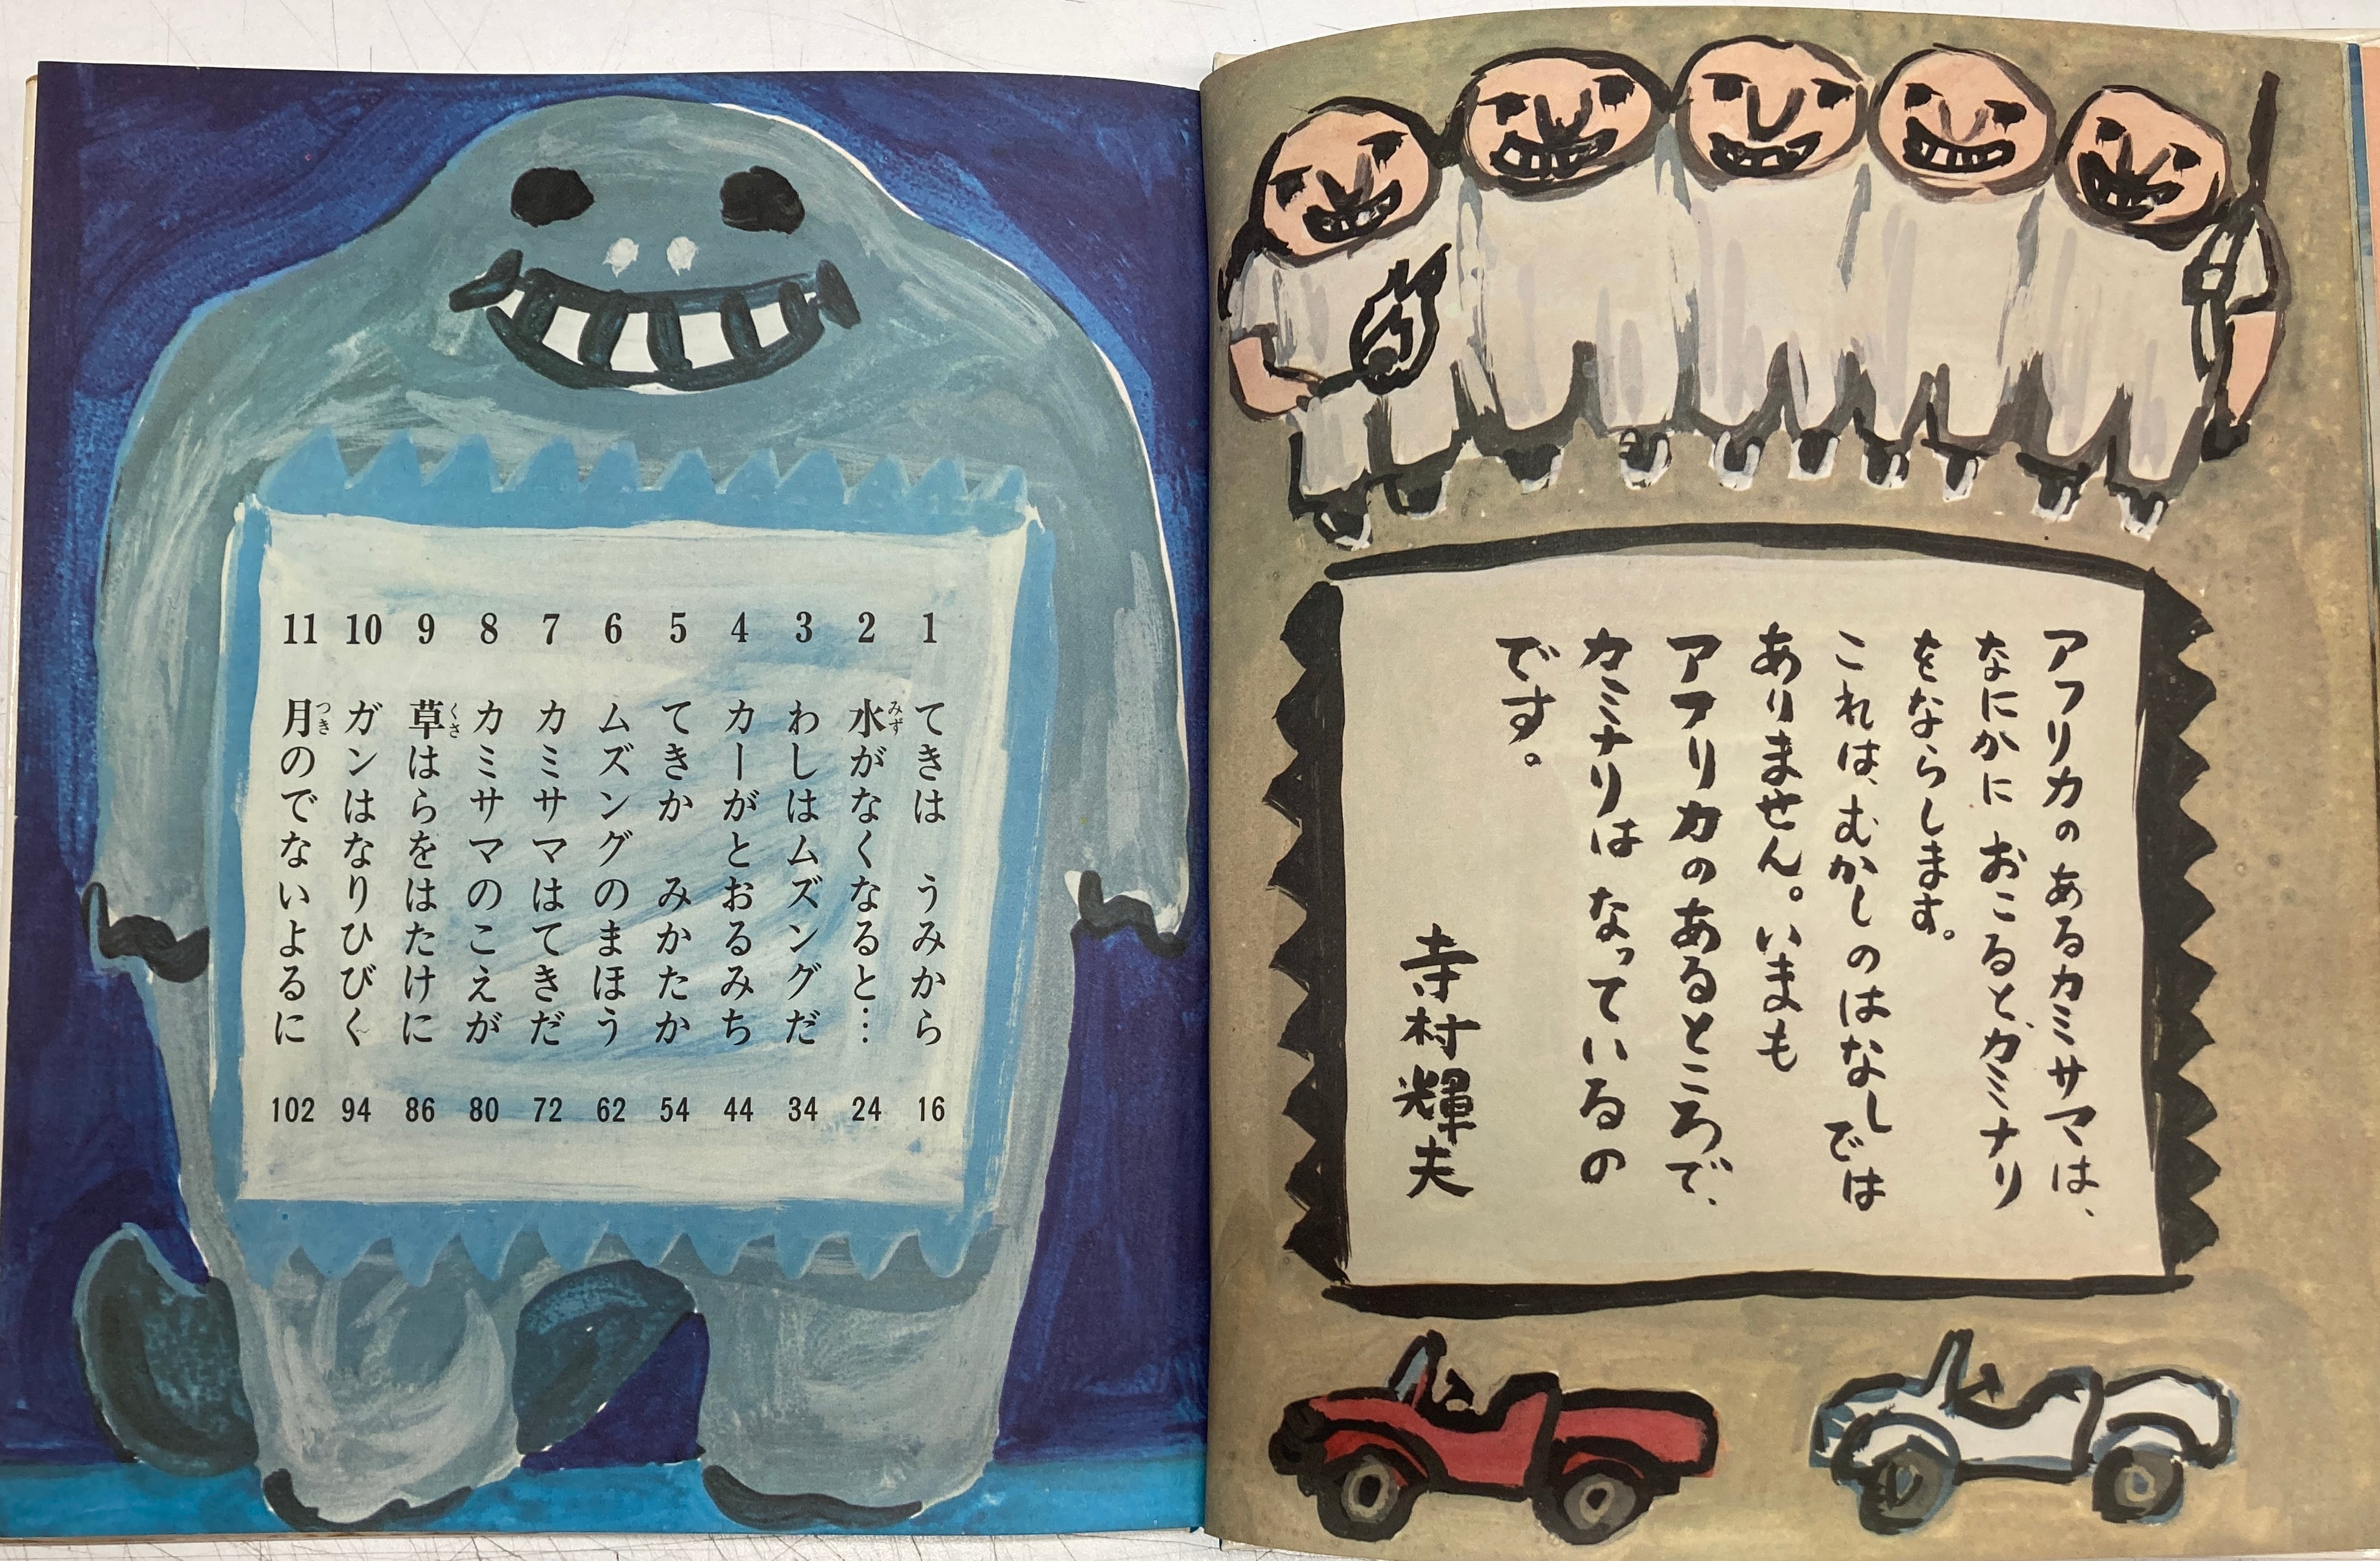 アフリカのあるカミサマは、
なにかに おこると、カミナリ
をならします。
これは、むかしのはなしでは
ありません。いまも
アフリカのあるところで、
カミナリは なっているの
です。
寺村輝夫
1 てきは うみから 16
みず
2 水がなくなると… 24
3 わしはムズングだ 34
4 カーがとおるみち 44
5 てきか みかたか 54
6 ムズングのまほう 62
7 カミサマはてきだ 72
8 カミサマのこえが 80
くさ
9 草はらをはたけに 86
10 ガンはなりひびく 94
つき
11 月のでないよるに 102